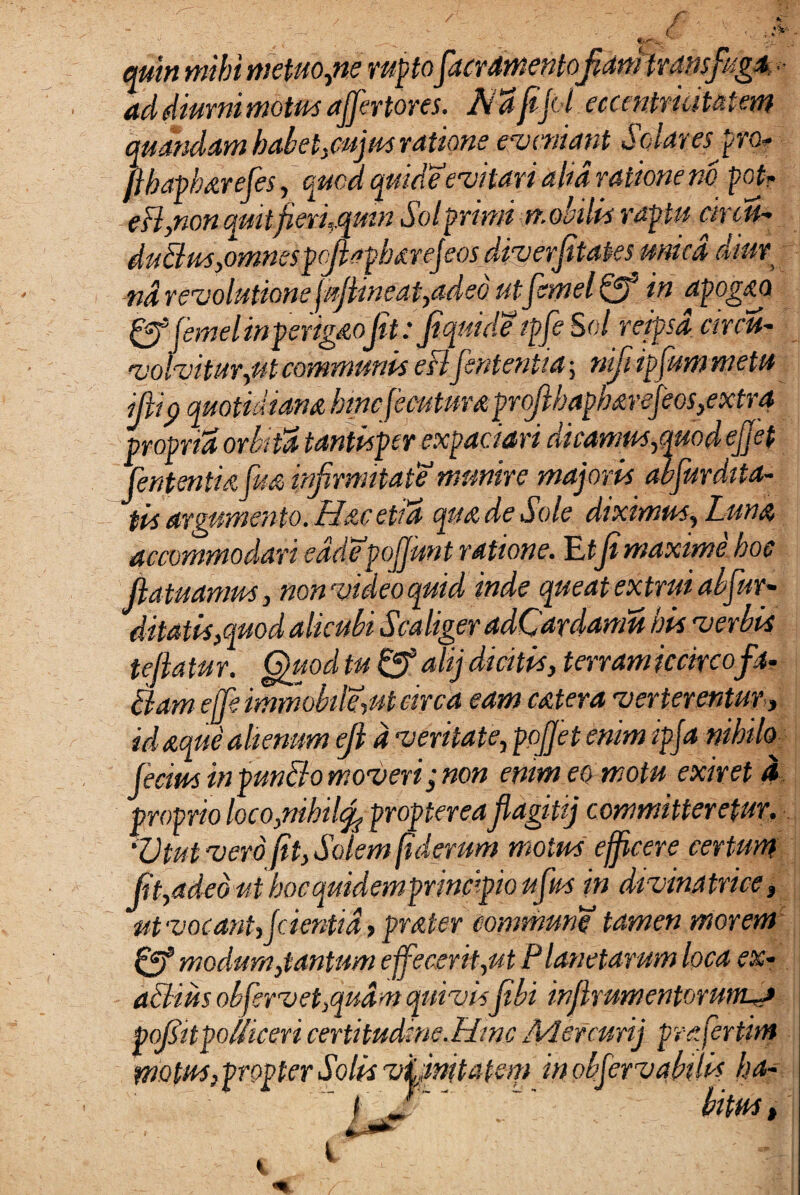 quin mihi metuo,ne rupto ſacramento fiam transfuga
ad diurni motus aſſertores. Nā ſi ſol eccentricitatem
quandam habet,cujus ratione eveniant Solares pro-
ſthaphæreſes, quod quidē evitari aliâ ratione nō pot-
eſt,non quit fieri,quin Sol primi mobilis raptu circū-
ductus,omnes poſthaphæreſeos diverſitates unicâ diur
nâ revolutione ſuſtineat,adeò ut ſemel & in apogæo
& ſemel in perigæo ſit: ſiquidē ipſe Sol reipsâ circū-
volvitur,ut communis eſt ſententia; niſi ipſum metu
iſtiꝰ quotidianæ hinc ſecuturæ proſthaphæreſeos,extra
propriā orbitā tantiſper expaciari dicamus,quod eſſet
ſententiæ ſuæ infirmitatē munire majoris abſurdita-
tis argumento. Hæc etiā quæ de Sole diximus, Lunæ
accommodari eâdē poſſunt ratione. Et ſi maximè hoc
ſtatuamus, non video quid inde queat extrui abſur-
ditatis,quod alicubi Scaliger ad Cardamū his verbis
teſtatur. Quod tu & alij dicitis, terram iccirco fa-
ctam eſſe immobilē,ut circa eam cætera verterentur,
id æquè alienum eſt à veritate, poſſet enim ipſa nihilo
ſecius in puncto moveri; non enim eo motu exiret à
proprio loco,nihilq́; propterea flagitij committeretur.
Vtut verò ſit, Solem ſiderum motus efficere certum
ſit,adeò ut hoc quidem principio uſus in divinatrice,
ut vocant, ſcientiâ, præter communē tamen morem
& modum,tantum effecerit,ut Planetarum loca ex-
actiùs obſervet,quàm quivis ſibi inſtrumentorum
poſſit polliceri certitudine. Hinc Mercurij præſertim
motus, propter Solis vicinitatem in obſervabilis ha-
bitus,